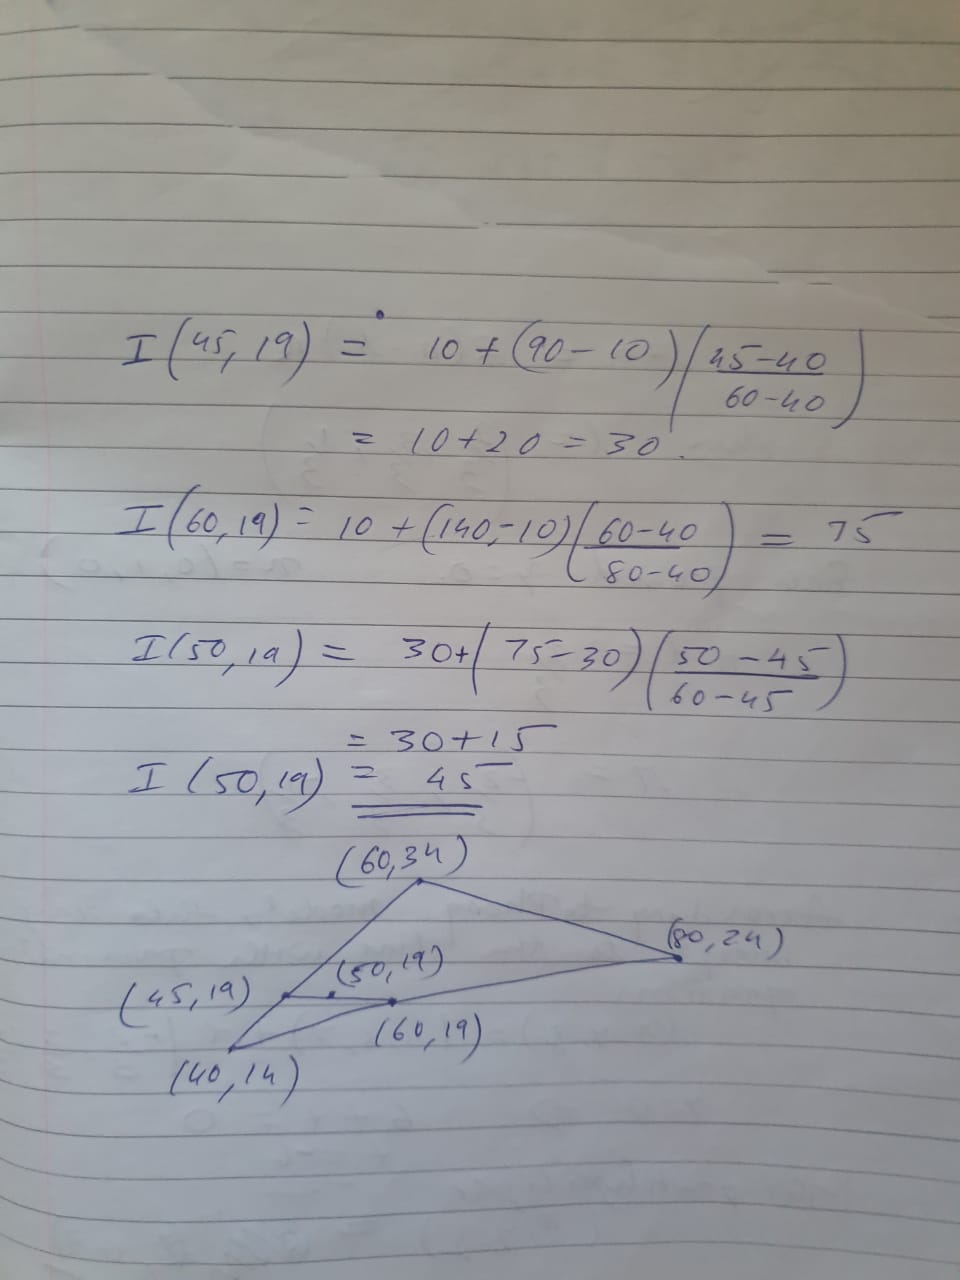 I(45,19) = 10+(90-10)(45-40/60-40)
= 10+20 = 30.
I(60,19) = 10+(140-10)(60-40/80-40) = 75
I(50,19) = 30+(75-30)(50-45/60-45)
= 30+15
I(50,19) = 45
(60,34)
(80,24)
(50,19)
(45,19)
(60,19)
(40,14)